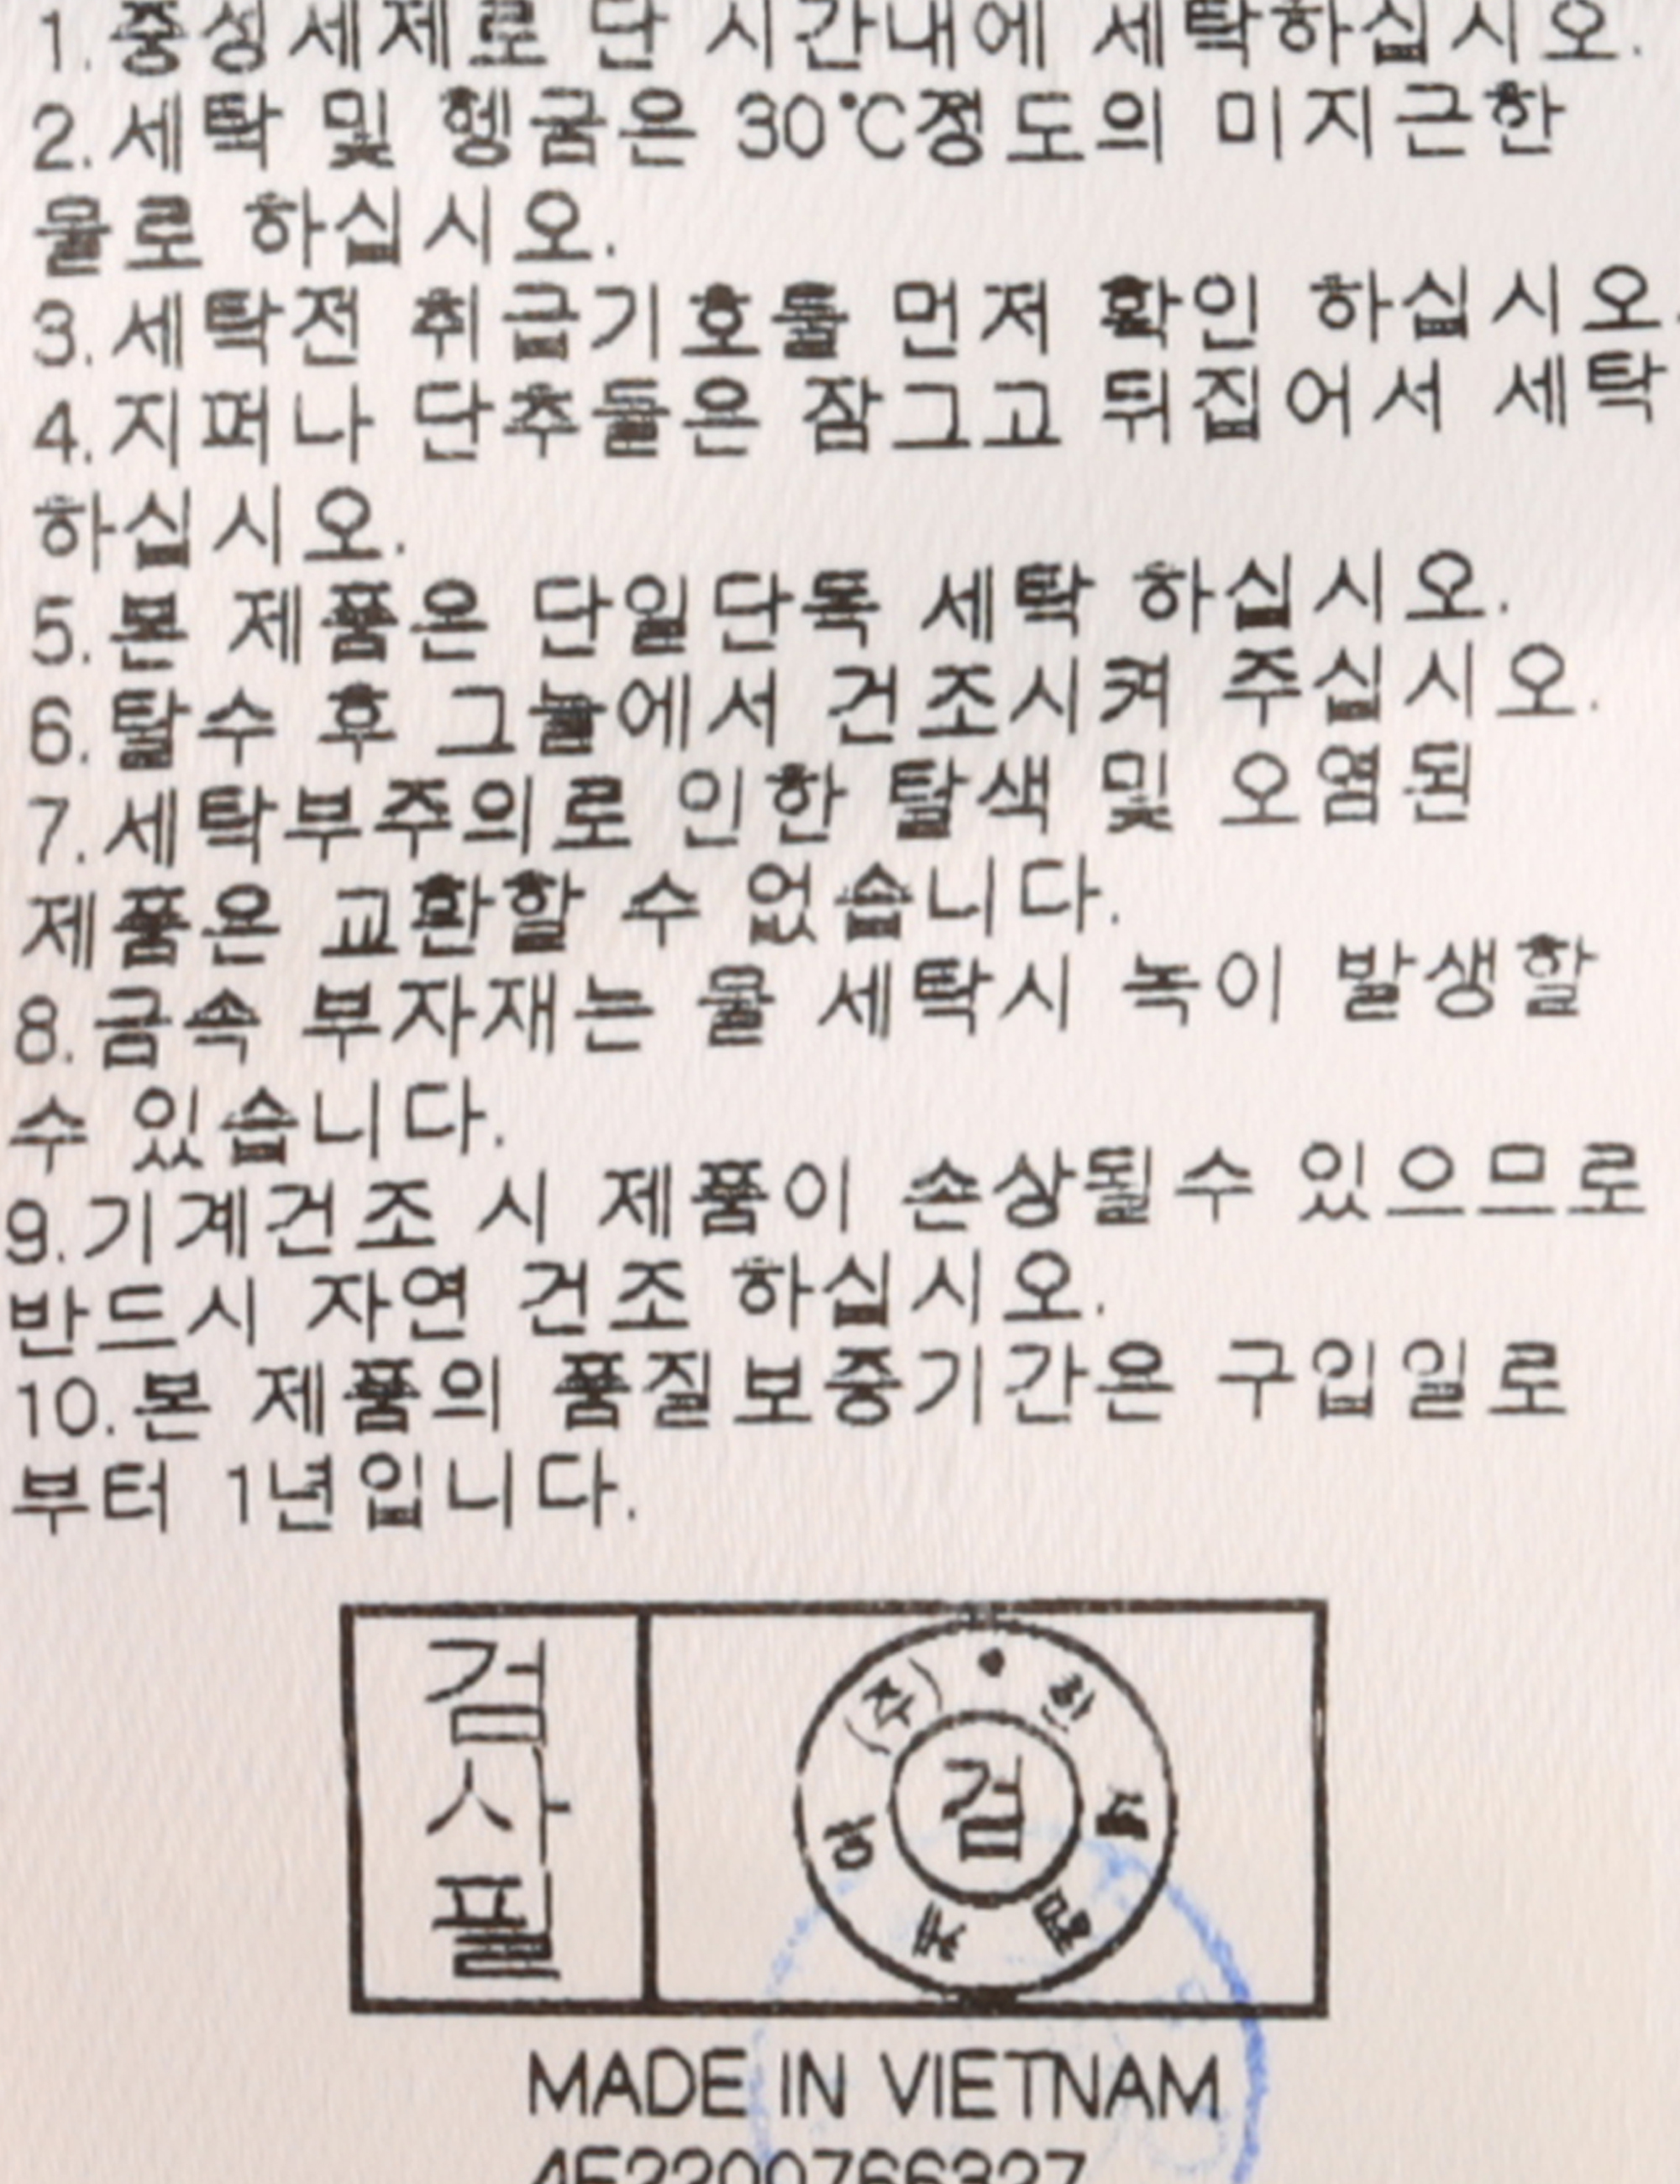 1.중성세제로 단 시간내에 세탁하십시오.
2.세탁 및 헹굼은 30℃정도의 미지근한
물로 하십시오.
3.세탁전 취급기호를 먼저 확인 하십시오.
4.지퍼나 단추들은 잠그고 뒤집어서 세탁
하십시오.
5.본 제품은 단일단독 세탁 하십시오.
6.탈수 후 그늘에서 건조시켜 주십시오.
7.세탁부주의로 인한 탈색 및 오염된
제품은 교환할 수 없습니다.
8.금속 부자재는 물 세탁시 녹이 발생할
수 있습니다.
9.기계건조 시 제품이 손상될수 있으므로
반드시 자연 건조 하십시오.
10.본 제품의 품질보증기간은 구입일로
부터 1년입니다.
검사필
(주)한
검
MADE IN VIETNAM